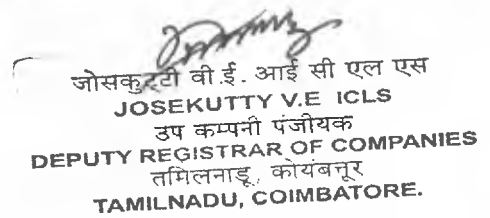 जोसकुट्टी वी.ई. आई सी एल एस
JOSEKUTTY V.E ICLS
उप कम्पनी पंजीयक
DEPUTY REGISTRAR OF COMPANIES
तमिलनाडू, कोयंबत्तूर
TAMILNADU, COIMBATORE.